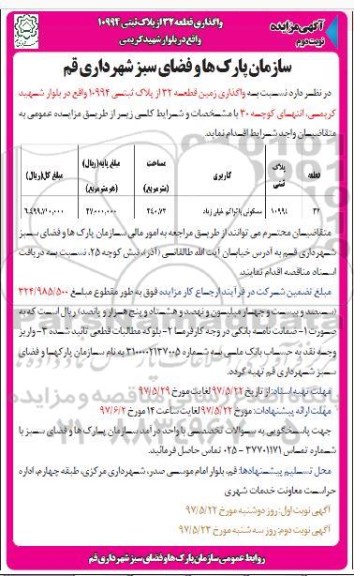 آگهی مزایده
نوبت دوم
واگذاری قطعه ۳۲ از پلاک ثبتی ۱۰۹۹۴
واقع در بلوار شهید کریمی
سازمان پارک ها و فضای سبز شهرداری قم
در نظر دارد نسبت به واگذاری زمین قطعه ۳۲ از پلاک ثبتی ۱۰۹۹۴ واقع در بلوار شهید
کریمی، انتهای کوچه ۳۰ با مشخصات و شرایط کلی زیر از طریق مزایده عمومی به
متقاضیان واجد شرایط اقدام نماید.
قطعه پلاک ثبتی کاربری مساحت (مترمربع) مبلغ پایه (ریال) (هر مترمربع) مبلغ کل (ریال)
۳۲ ۱۰۹۹۴ مسکونی با تراکم خیلی زیاد ۲۴۰/۷۳ ۲۷،۰۰۰،۰۰۰ ۶،۴۹۹،۷۱۰،۰۰۰
متقاضیان محترم می توانند از طریق مراجعه به امور مالی سازمان پارک ها و فضای سبز
شهرداری قم به آدرس خیابان آیت الله طالقانی (آذر)، نبش کوچه ۲۵، نسبت به دریافت
اسناد مناقصه اقدام نمایند.
مبلغ تضمین شرکت در فرآیند ارجاع کار مزایده فوق به طور مقطوع مبلغ ۳۲۴/۹۸۵/۵۰۰
(سیصد و بیست و چهار میلیون و نهصد و هشتاد و پنج هزار و پانصد) ریال است که به
صورت ۱- ضمانت نامه بانکی در وجه کارفرما ۲- بلوکه مطالبات قطعی تائید شده ۳- واریز
وجه نقد به حساب بانک ملی سه شماره ۳۱۰۰۰۰۲۱۳۷۰۰۵ به نام سازمان پارکها و فضای
سبز شهرداری قم تهیه گردد.
مهلت تهیه اسناد: از تاریخ ۹۷/۵/۲۲ لغایت مورخ ۹۷/۵/۲۹
مهلت ارائه پیشنهادات: مورخ ۹۷/۵/۲۲ لغایت ساعت ۱۴ مورخ ۹۷/۶/۲
جهت پاسخگویی به سوالات تخصصی با واحد درآمد سازمان پارک ها و فضای سبز با
شماره تماس ۳۷۷۰۱۱۷۱ - ۰۲۵ تماس حاصل فرمائید.
محل تسلیم پیشنهادها: قم، بلوار امام موسی صدر، شهرداری مرکزی، طبقه چهارم، اداره
حراست معاونت خدمات شهری
آگهی نوبت اول: روز دوشنبه مورخ ۹۷/۵/۲۲
آگهی نوبت دوم: روز سه شنبه مورخ ۹۷/۵/۲۳
روابط عمومی سازمان پارک ها و فضای سبز شهرداری قم